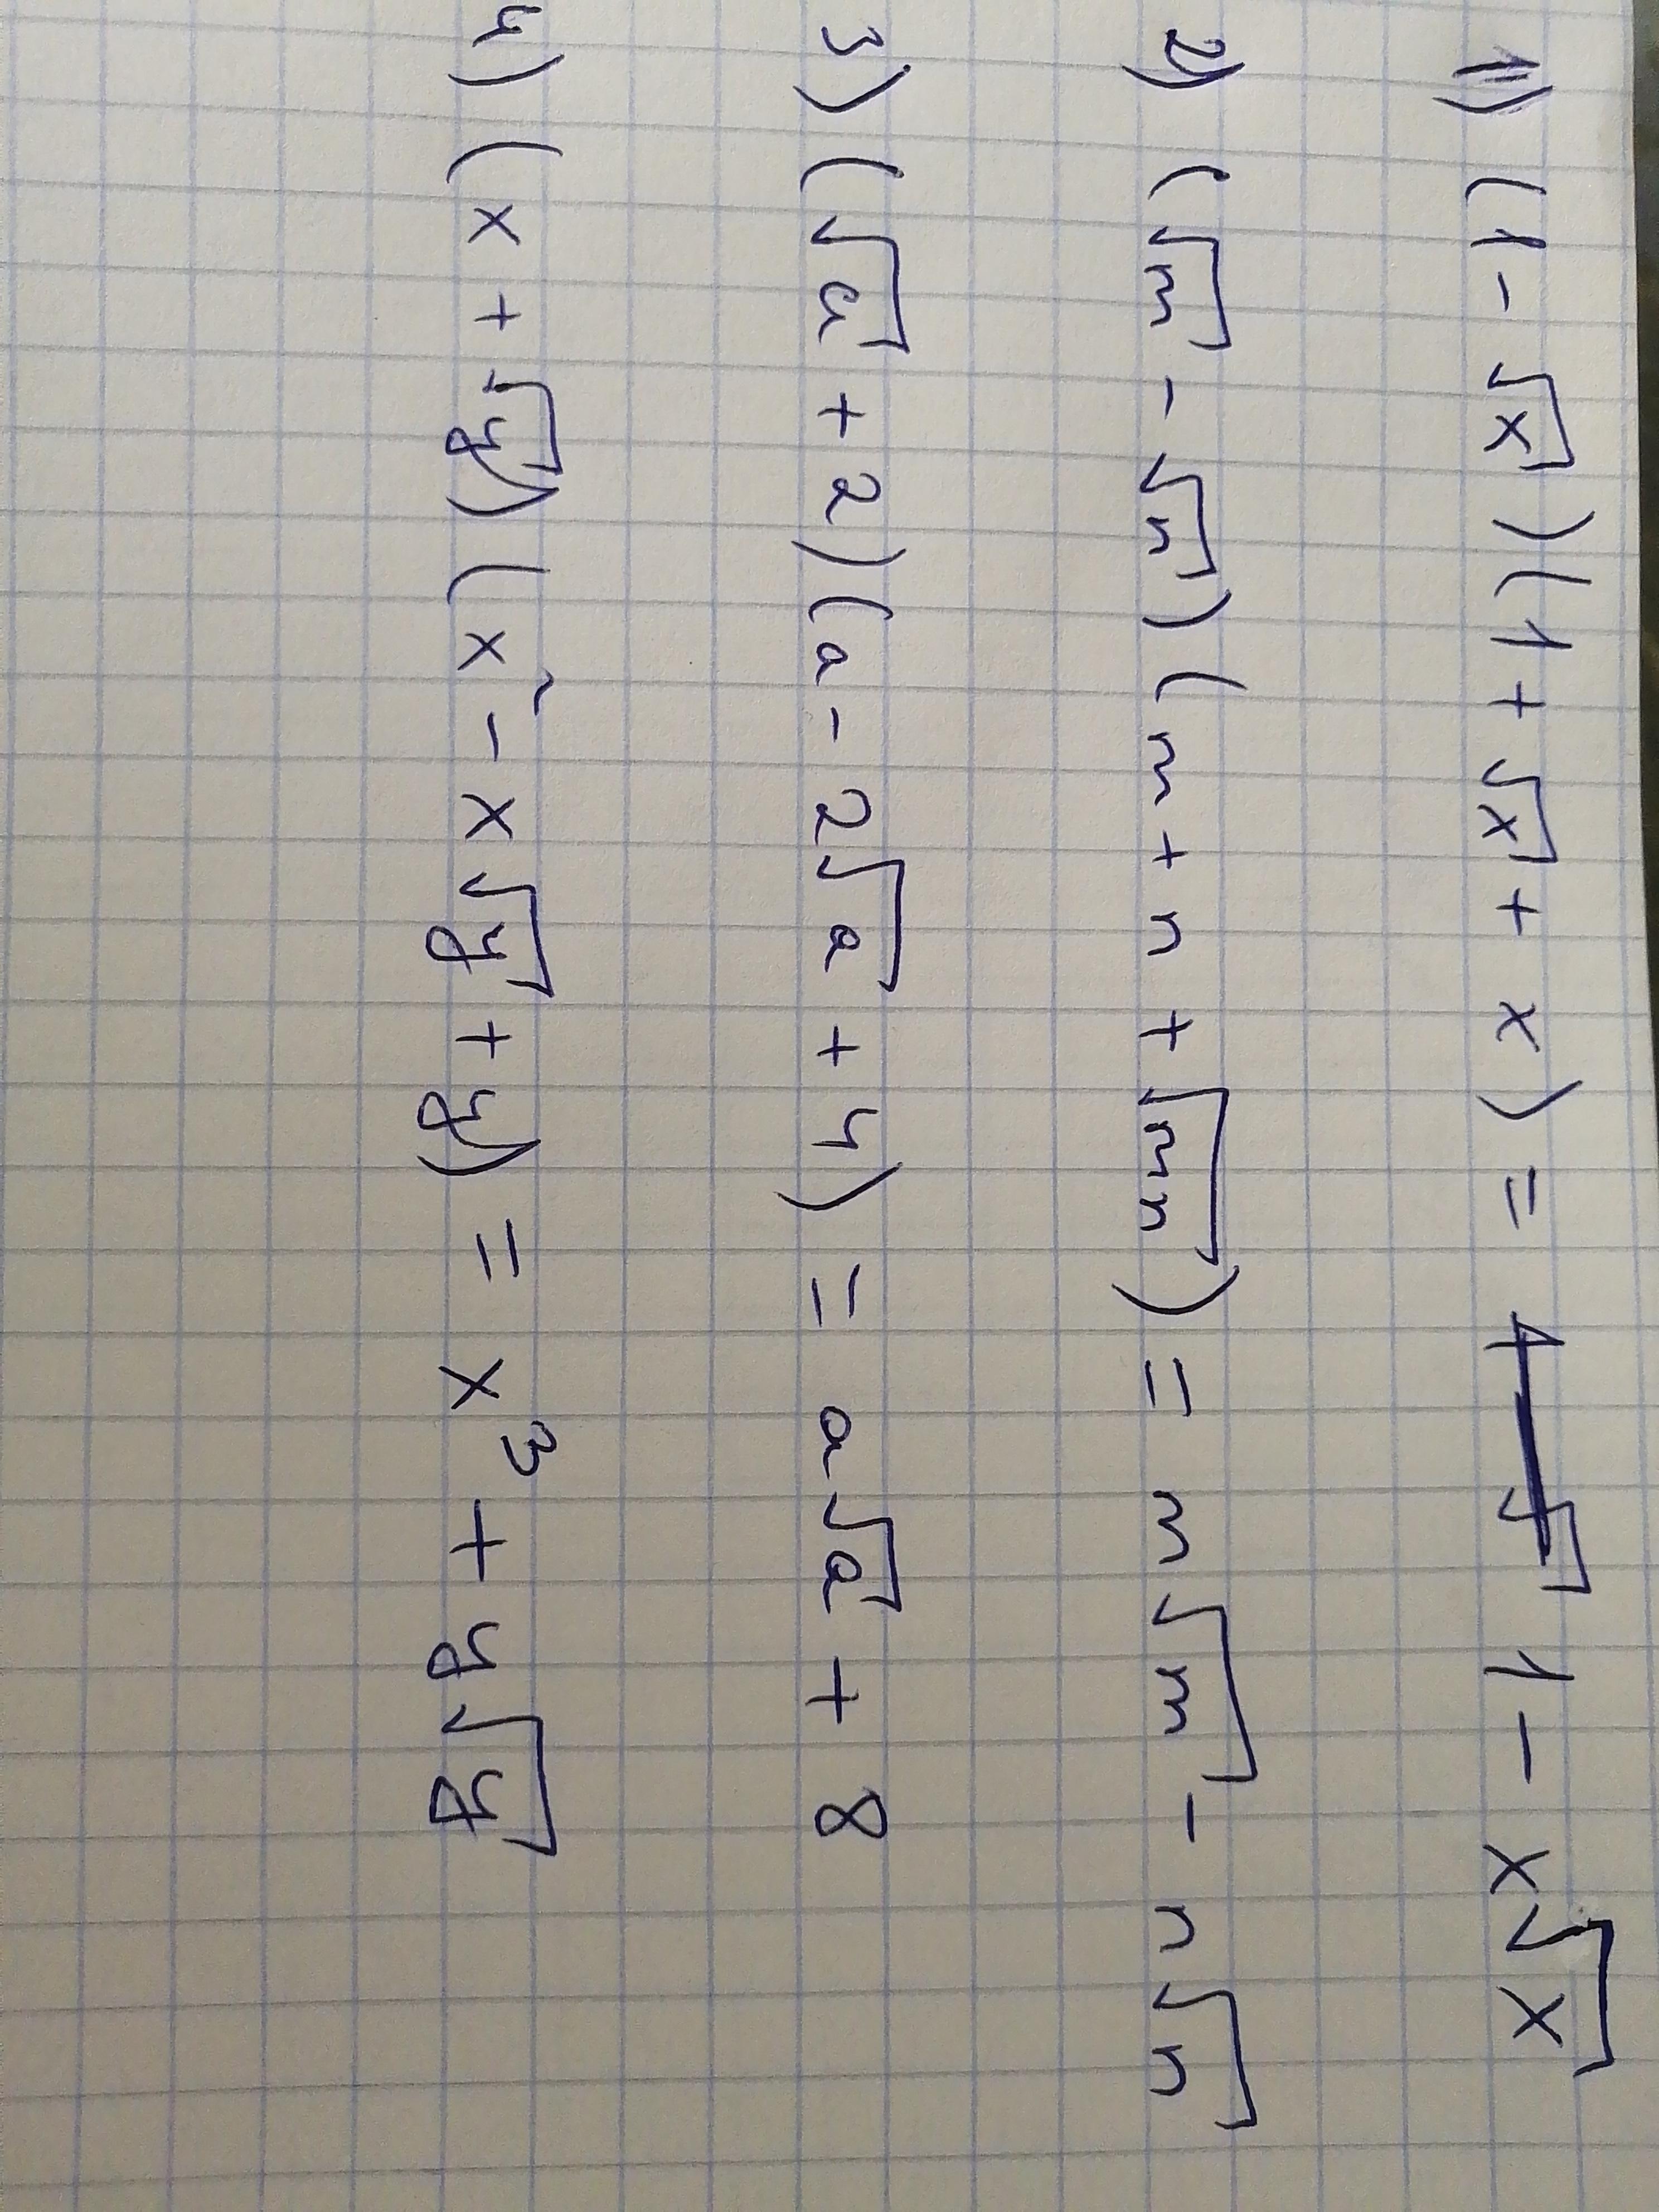 1) (1 - √x)(1 + √x + x) = 1 - x√x
2) (√m - √n)(m + n + √mn) = m√m - n√n
3) (√a + 2)(a - 2√a + 4) = a√a + 8
4) (x + √y)(x² - x√y + y) = x³ + y√y